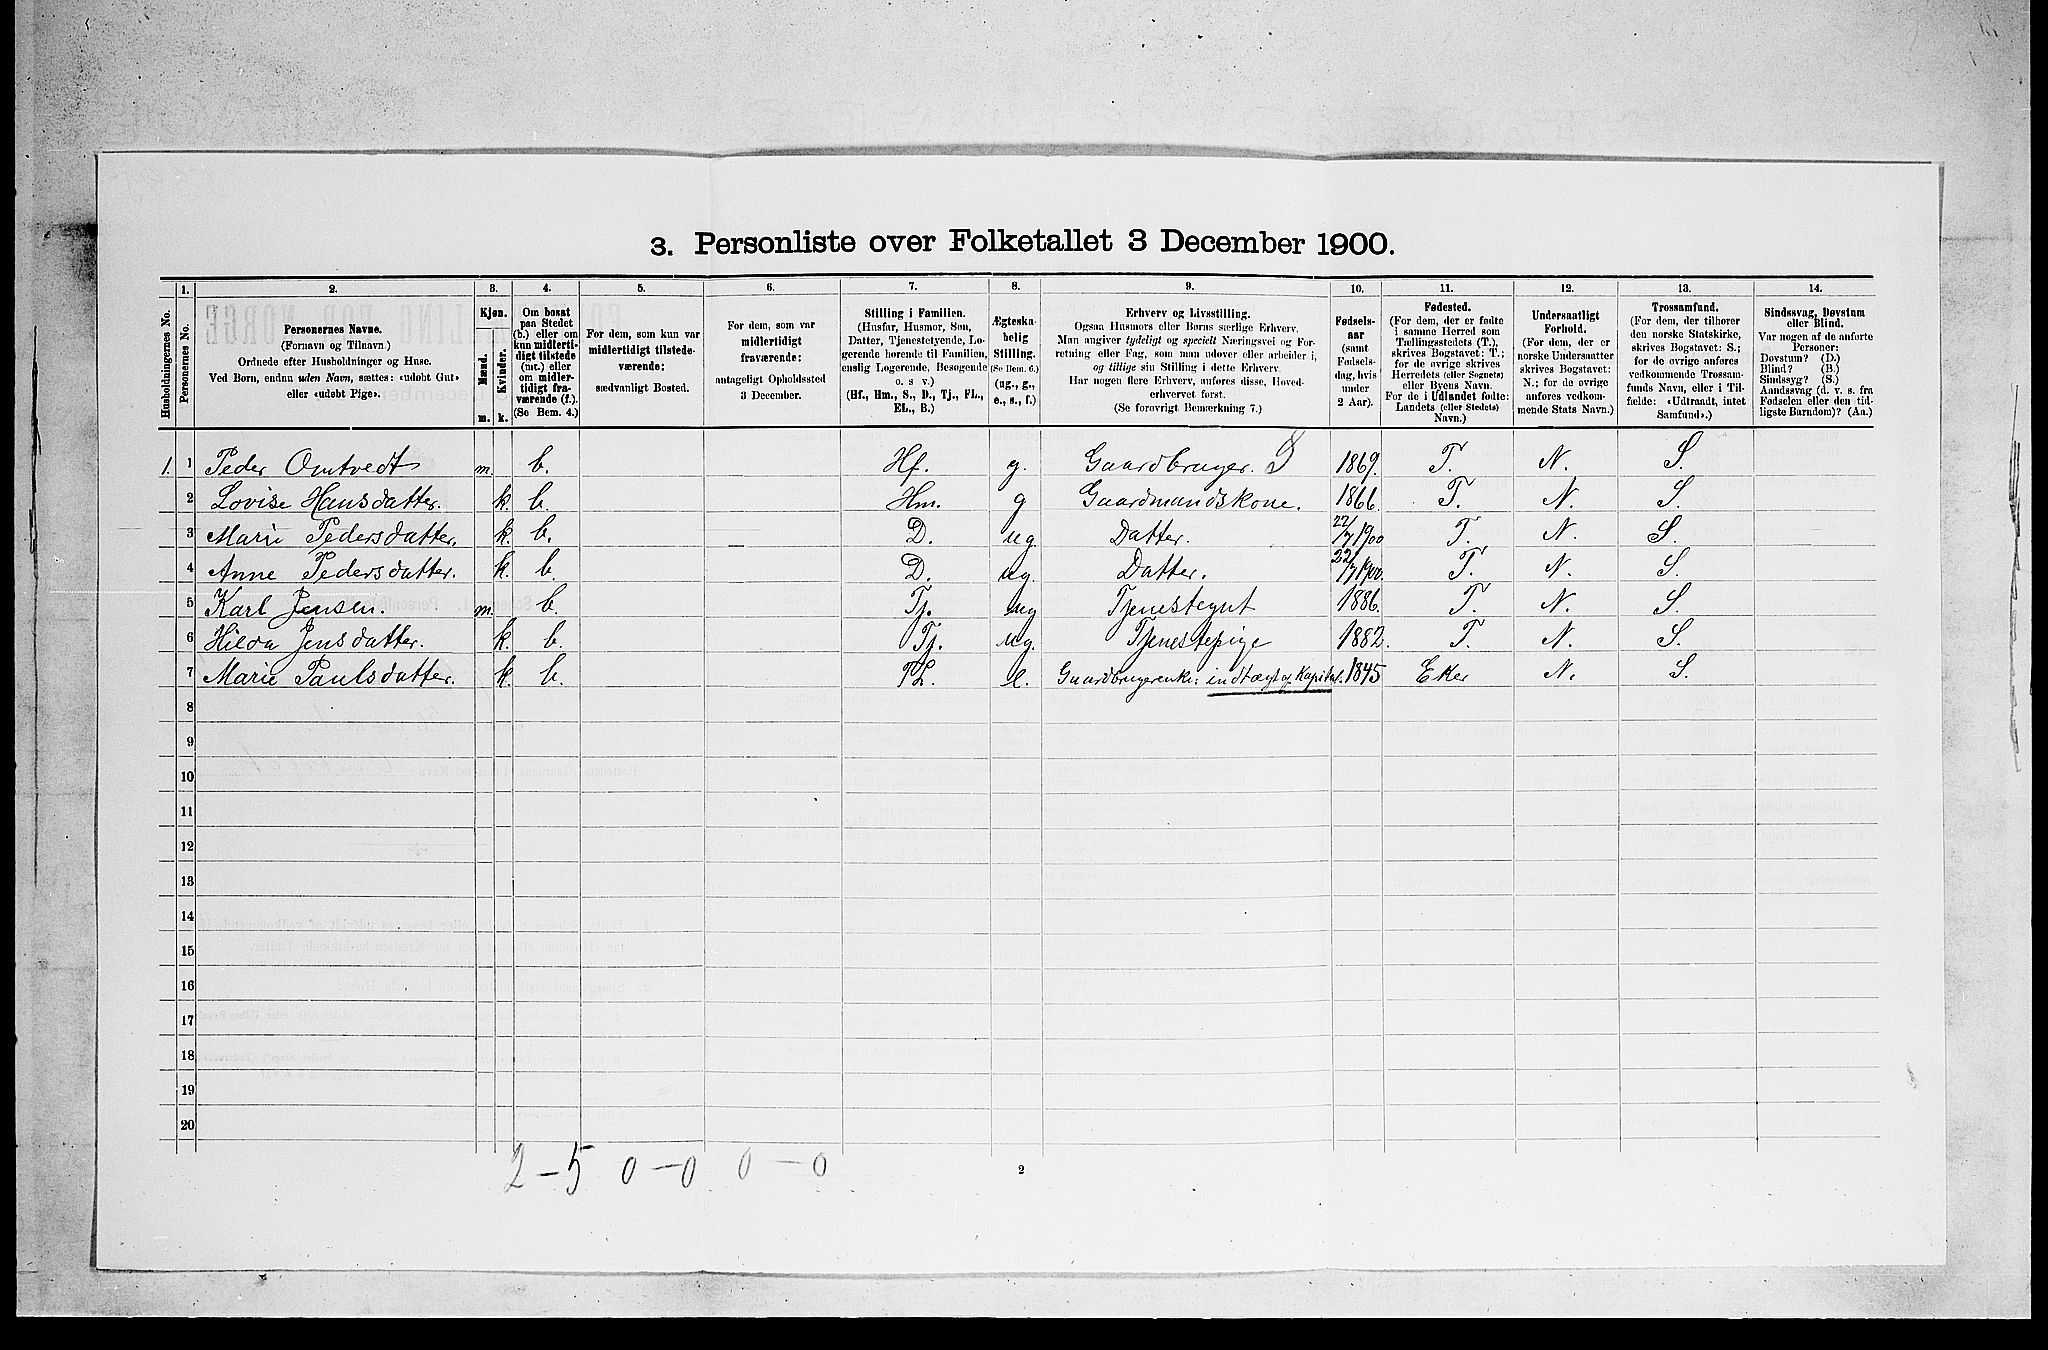 3. Personliste over Folketallet 3 December 1900.
1. 2. 3. 4. 5. 6. 7. 8. 9. 10. 11. 12. 13. 14.
Husholdningernes No.
Personernes No.
Personernes Navne.
(Fornavn og Tilnavn.)
Ordnede efter Husholdninger og Huse.
Ved Børn, endnu uden Navn, sættes: «udøbt Gut»
eller «udøbt Pige».
Kjøn.
Mænd.
Kvinder.
m. k.
Om bosat
paa Stedet
(b.) eller om
kun midlerti-
digt tilstede
(mt.) eller
om midler-
tidigt fra-
værende (f.).
(Se Bem. 4.)
For dem, som kun var
midlertidigt tilstede-
værende:
sædvanligt Bosted.
For dem, som var
midlertidigt
fraværende:
antageligt Opholdssted
3 December.
Stilling i Familien.
(Husfar, Husmor, Søn,
Datter, Tjenestetyende, Lo-
gerende hørende til Familien,
enslig Logerende, Besøgende
o. s v.)
(Hf., Hm., S., D., Tj., FL.,
EL., B.)
Ægteska-
belig
Stilling.
(Se Bem. 6.)
(ug., g.,
e., s., f.)
Erhverv og Livsstilling.
Ogsaa Husmors eller Børns særlige Erhverv.
Man angiver tydeligt og specielt Næringsvei og For-
retning eller Fag, som man udøver eller arbeider i,
og tillige sin Stilling i dette Erhverv.
Har nogen flere Erhverv, anføres disse, Hoved-
erhvervet først.
(Se forøvrigt Bemærkning 7.)
Fødsels-
aar
(samt
Fødsels-
dag, hvis
under
2 Aar).
Fødested.
(For dem, der er fødte
i samme Herred som
Tællingsstedets (T.),
skrives Bogstavet: T.;
for de øvrige skrives
Herredets (eller Sognets)
eller Byens Navn.
For de i Udlandet fødte:
Landets (eller Stedets)
Navn.)
Undersaatligt
Forhold.
(For dem, der er
norske Undersaatter
skrives Bogstavet:
N.; for de øvrige
anføres vedkom-
mende Stats Navn.)
Trossamfund.
(For dem, der tilhører
den norske Statskirke,
skrives Bogstavet: S.;
for de øvrige anføres
vedkommende Trossam-
funds Navn, eller i Til-
fælde: «Udtraadt, intet
Samfund».)
Sindssvag, Døvstum
eller Blind.
Var nogen af de anførte
Personer:
Døvstum? (D.)
Blind? (B.)
Sindssyg? (S.)
Aandssvag (d. v. s. fra
Fødselen eller den tid-
ligste Barndom)? (Aa.)
1. 1 Peder Omtvedt m. b. Hf. g. Gaardbruger. 1869. T. N. S.
2 Lovise Hansdatter. k. b. Hm. g Gaardmandskone. 1866. T. N. S.
3 Marie Pedersdatter. k. b. D. ug. Datter. 22/7 1900 T. N. S.
4 Anne Pedersdatter. k. b. D. ug. Datter. 22/7 1900. T. N. S.
5 Karl Jensen. m. b. Tj. ug Tjenestegut 1886. T. N. S.
6 Hilda Jensdatter. k. b. Tj. ug. Tjenestepige 1882. T. N. S.
7 Marie Paulsdatter. k. b. FL. e. Gaardbrugerenke: indtægt af Kapital. 1845 Eker N. S.
8
9
10
11
12
13
14
15
16
17
18
19
20
2 – 5 0 – 0 0 – 0
2